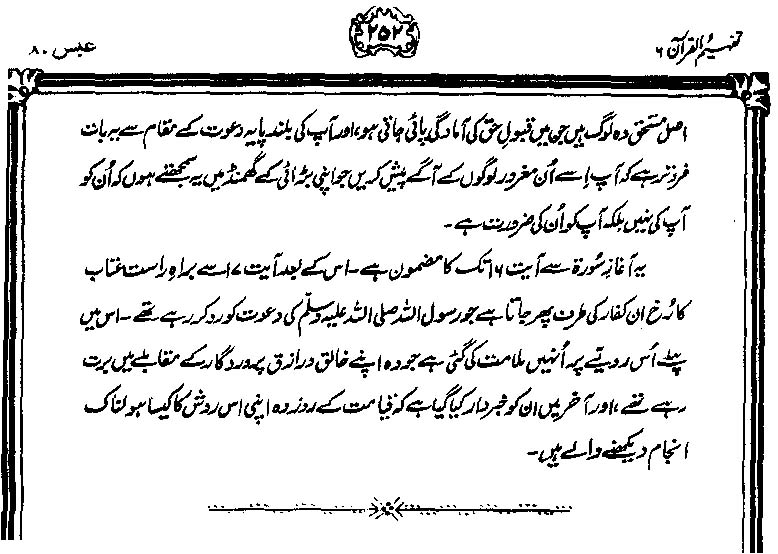 تفہیم القرآن ۶
۲۵۲
عبس ۸۰
اصل مستحق وہ لوگ ہیں جن میں قبولِ حق کی آمادگی پائی جاتی ہو، اور آپ کی بلند پایہ دعوت کے مقام سے یہ بات
فروتر ہے کہ آپ اِسے اُن مغرور لوگوں کے آگے پیش کریں جو اپنی بڑائی کے گھمنڈ میں یہ سمجھتے ہوں کہ اُن کو
آپ کی نہیں بلکہ آپ کو اُن کی ضرورت ہے۔
یہ آغازِ سُورۃ سے آیت ۱۶ تک کا مضمون ہے۔ اس کے بعد آیت ۱۷ سے براہِ راست عتاب
کا رُخ ان کفار کی طرف پھر جاتا ہے جو رسول اللہ صلی اللہ علیہ وسلّم کی دعوت کو رد کر رہے تھے۔ اس میں
پہلے اُس رویّے پر اُنہیں ملامت کی گئی ہے جو وہ اپنے خالق و رازق پروردگار کے مقابلے میں برت
رہے تھے، اور آخر میں ان کو خبردار کیا گیا ہے کہ قیامت کے روز وہ اپنی اس روش کا کیسا ہولناک
انجام دیکھنے والے ہیں۔